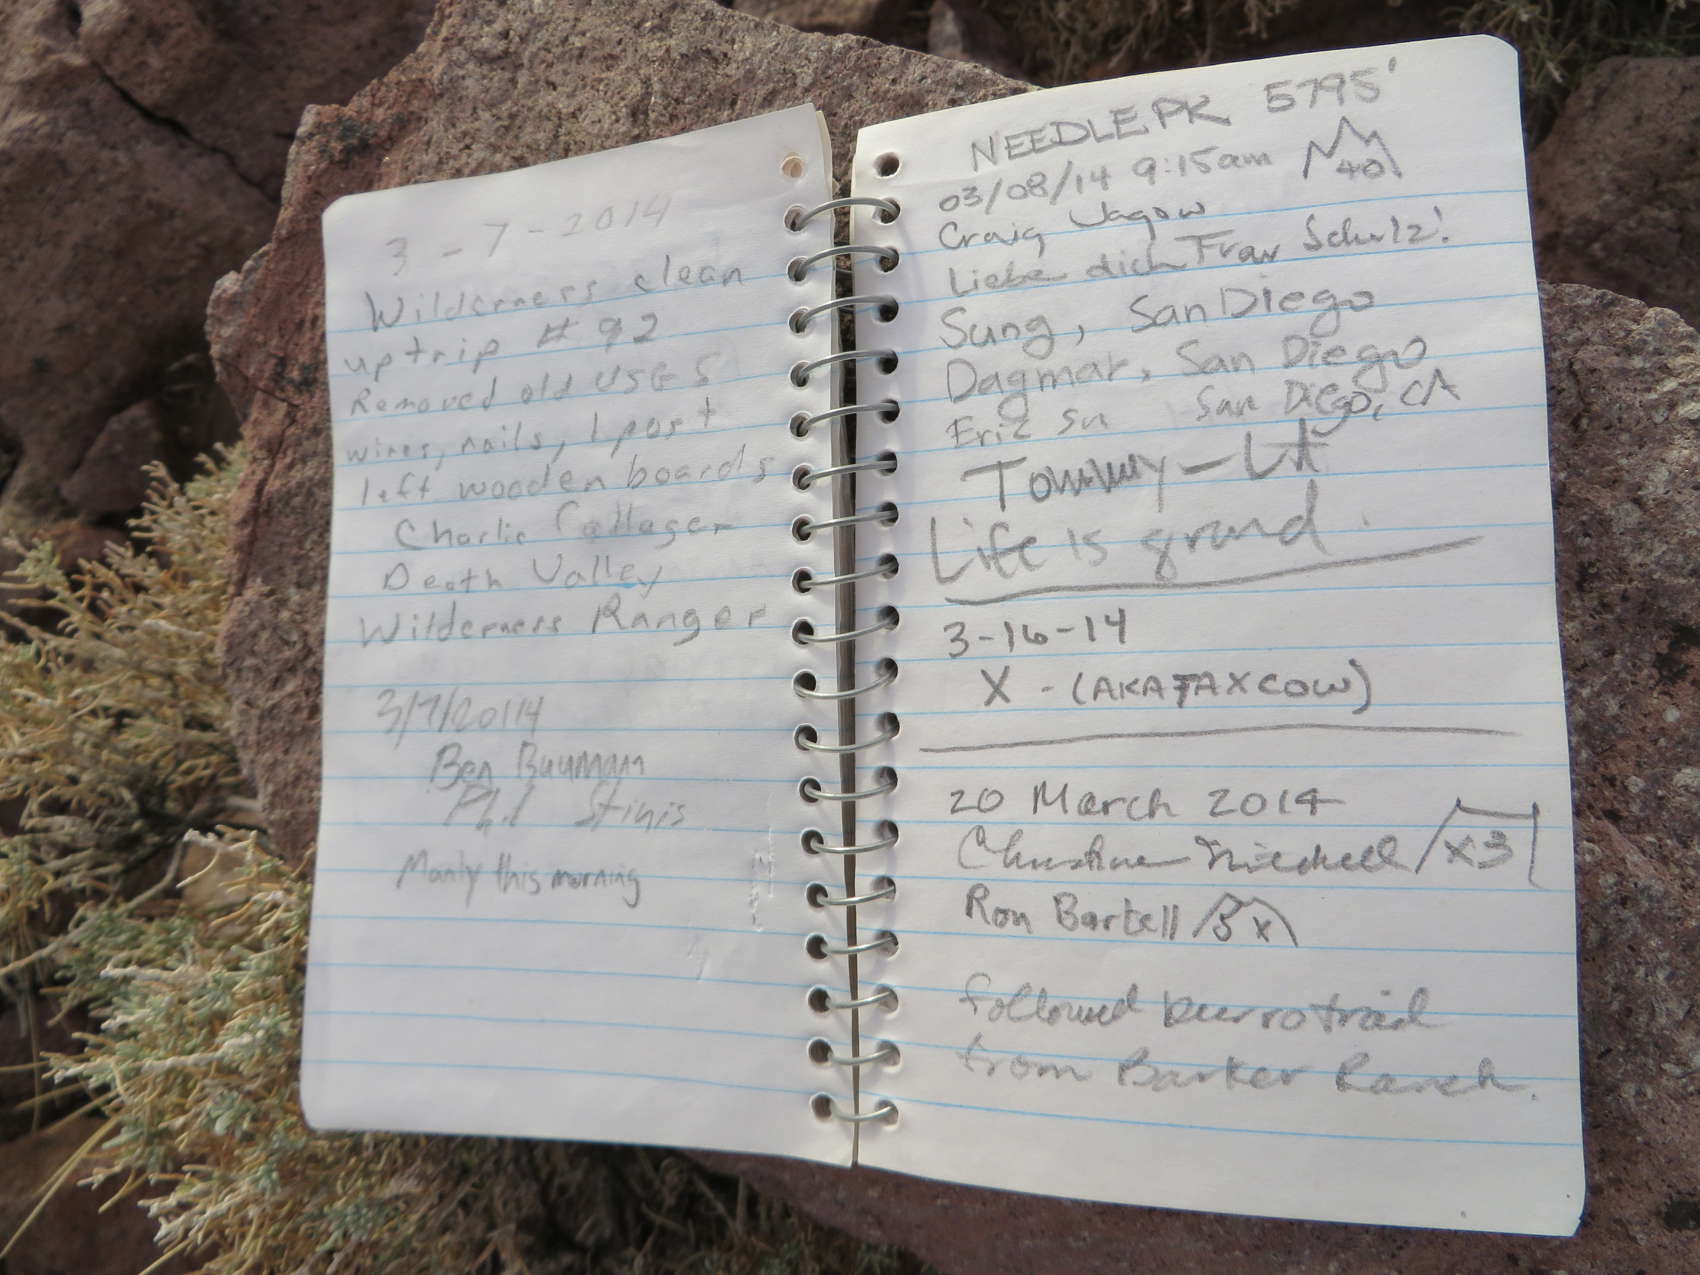 3 - 7 - 2014
Wilderness clean
up trip # 92
Removed old USGS
wires, nails, 1 post
left wooden boards
Charlie Callager
Death Valley
Wilderness Ranger
3/7/2014
Ben Bauman
Phil Stinis
Manly this morning
NEEDLE PK 5795'
03/08/14 9:15am 40
Craig Jagow
Liebe dich Frau Schulz!
Sung, San Diego
Dagmar, San Diego
Eric Su San Diego, CA
Tommy - Lt
Life is grand.
3-16-14
X - (AKA TAXCOW)
20 March 2014
Christine Mitchell x3
Ron Bartell 3x
followed burro trail
from Barker Ranch.